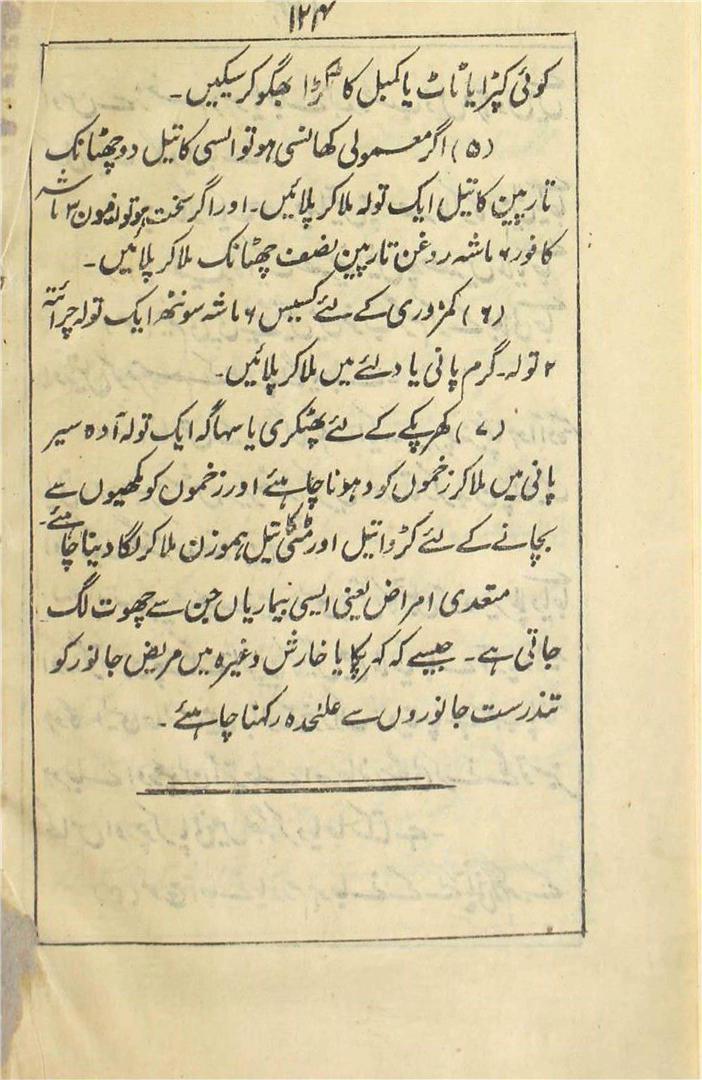 ۱۲۴
کوئی کپڑا یا ٹاٹ یا کمبل کا ٹکڑا بھگو کر سیکیں۔
(۵) اگر معمولی کھانسی ہو تو السی کا تیل دو چھٹانک
تارپین کا تیل ایک تولہ ملا کر پلائیں۔ اور اگر سخت ہو تو افیون ۳ ماشہ
کافور ۶ ماشہ روغن تارپین نصف چھٹانک ملا کر پلائیں۔
(۶) کمزوری کے لئے کسیس ۶ ماشہ سونٹھ ایک تولہ چرائتہ
۲ تولہ۔ گرم پانی یا دلئے میں ملا کر پلائیں۔
(۷) کھرپکے کے لئے پھٹکری یا سہاگہ ایک تولہ آدہ سیر
پانی میں ملا کر زخموں کو دہونا چاہئے اور زخموں کو مکھیوں سے
بچانے کے لئے کڑوا تیل اور مٹی کا تیل ہموزن ملا کر لگا دینا چاہئے۔
متعدی امراض یعنی ایسی بیماریاں جن سے چھوت لگ
جاتی ہے۔ جیسے کہ کہرپکا یا خارش وغیرہ میں مریض جانور کو
تندرست جانوروں سے علٰحدہ رکہنا چاہئے۔